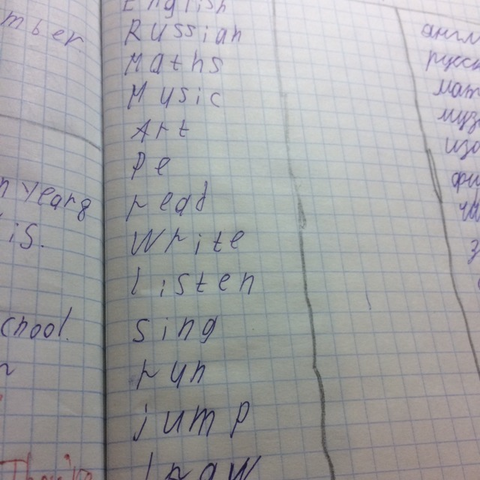 mber
n yearg
is.
chool.
English
Russian
Maths
Music
Art
Pe
read
Write
listen
sing
run
jump
draw
англ
русс
мат
муз
изо
фи
чи